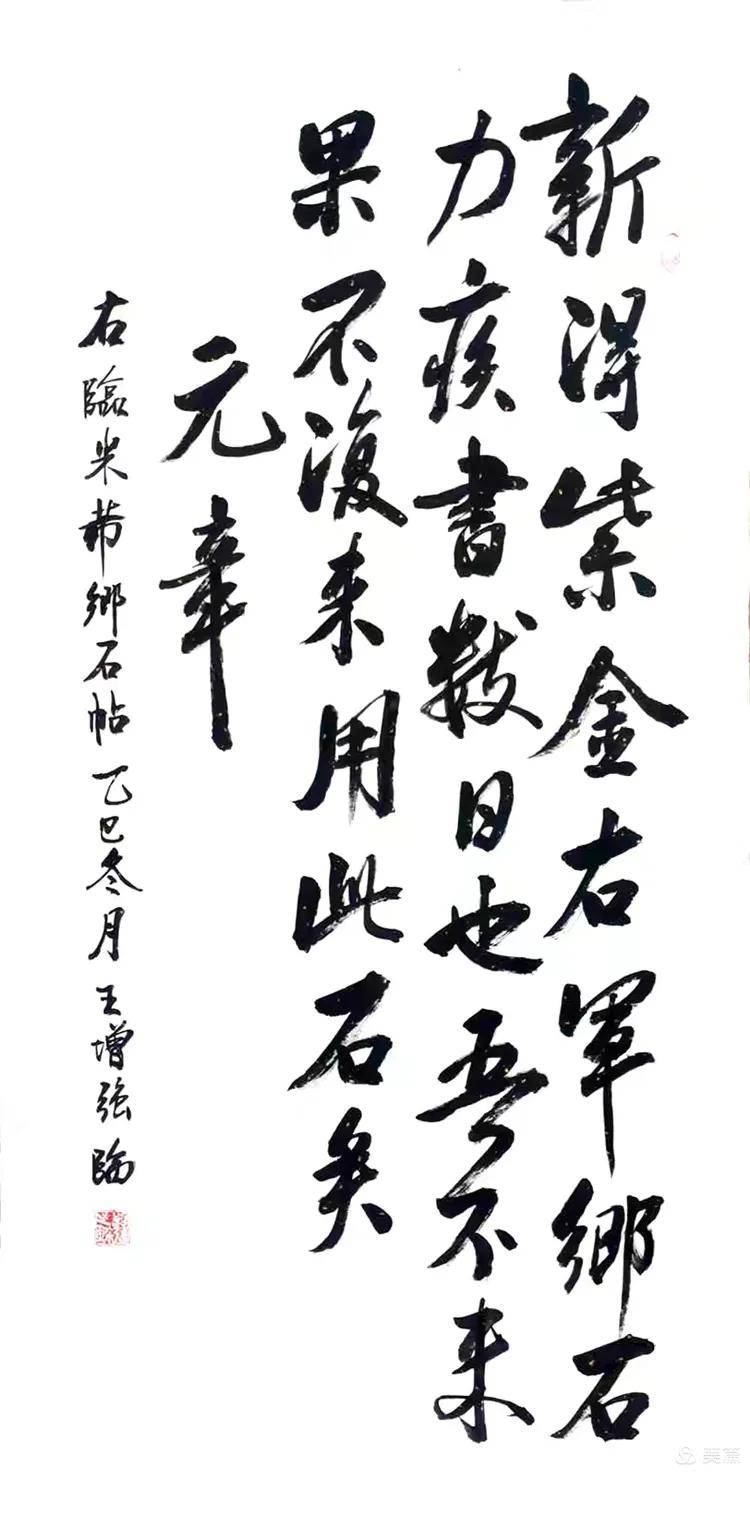 新得紫金右軍鄉石
力疾書數日也吾不来
果不復来用此石矣
元章
右臨米芾鄉石帖乙巳冬月王增强臨
美篇